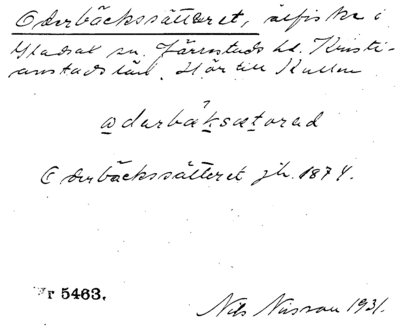 Oderbäckssätteret, älfiske i
Ysadsal sn. Järrestads hd. Kristi-
anstads län. Hör till Kullen
adarbäksætorad
Oderbäckssätteret jb. 1874.
Nr 5463.
Nils Nilsson 1931.